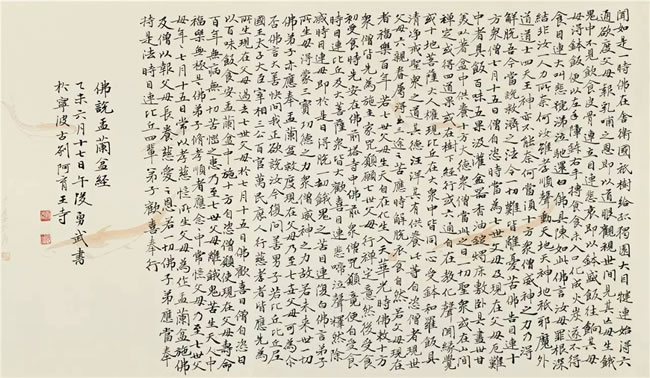 聞如是一時佛在舍衛國祇樹給孤獨園大目犍連始得六
通欲度父母報乳哺之恩即以道眼觀視世間見其亡母生餓
鬼中不見飲食皮骨連立目連悲哀即以鉢盛飯往餉其母
母得鉢飯便以左手障鉢右手摶食食未入口化成火炭遂不得
食目連大叫悲號涕泣馳還白佛具陳如此佛言汝母罪根深
結非汝一人力所奈何汝雖孝順聲動天地天神地祇邪魔外
道道士四天王神亦不能奈何當須十方衆僧威神之力乃得
解脫吾今當說救濟之法令一切難皆離憂苦佛告目連十
方衆僧七月十五日僧自恣時當爲七世父母及現在父母厄難
中者具飯百味五果汲灌盆器香油錠燭床敷卧具盡世甘
美以著盆中供養十方大德衆僧當此之日一切聖衆或在山間
禪定或得四道果或在樹下經行或六通自在教化聲聞緣覺
或十地菩薩大人權現比丘在大衆中皆同一心受鉢和羅飯具
清淨戒聖衆之道其德汪洋其有供養此等自恣僧者現世
父母六親眷屬得出三途之苦應時解脫衣食自然若父母現在
者福樂百年若七世父母生天自在化生入天華光時佛敕十方
衆僧皆先爲施主家咒願願七世父母行禪定意然後受食
初受食時先安在佛前塔寺中佛前衆僧咒願竟便自受食
時目連比丘及大菩薩衆皆大歡喜目連悲啼泣聲釋然除
滅時目連母即於是日得脫一劫餓鬼之苦目連復白佛言弟子
所生母得蒙三寶功德之力衆僧威神之力故若未來世一切
佛弟子亦應奉盂蘭盆救度現在父母乃至七世父母可爲爾
否佛言大善快問我正欲說汝今復問善男子若比丘比丘尼
國王太子大臣宰相三公百官萬民庶人行慈孝者皆應先爲
所生現在父母過去七世父母於七月十五日佛歡喜日僧自恣日
以百味飯食安盂蘭盆中施十方自恣僧願使現在父母壽命
百年無病無一切苦惱之患乃至七世父母離餓鬼苦生人天中
福樂無極是佛弟子修孝順者應念念中常憶父母乃至七世父
母年年七月十五日常以孝慈憶所生父母爲作盂蘭盆施佛
及僧以報父母長養慈愛之恩若一切佛弟子應當奉
持是法時目連比丘四輩弟子歡喜奉行
佛說盂蘭盆經
乙未六月十七日午後勇武書
於寧波古刹阿育王寺